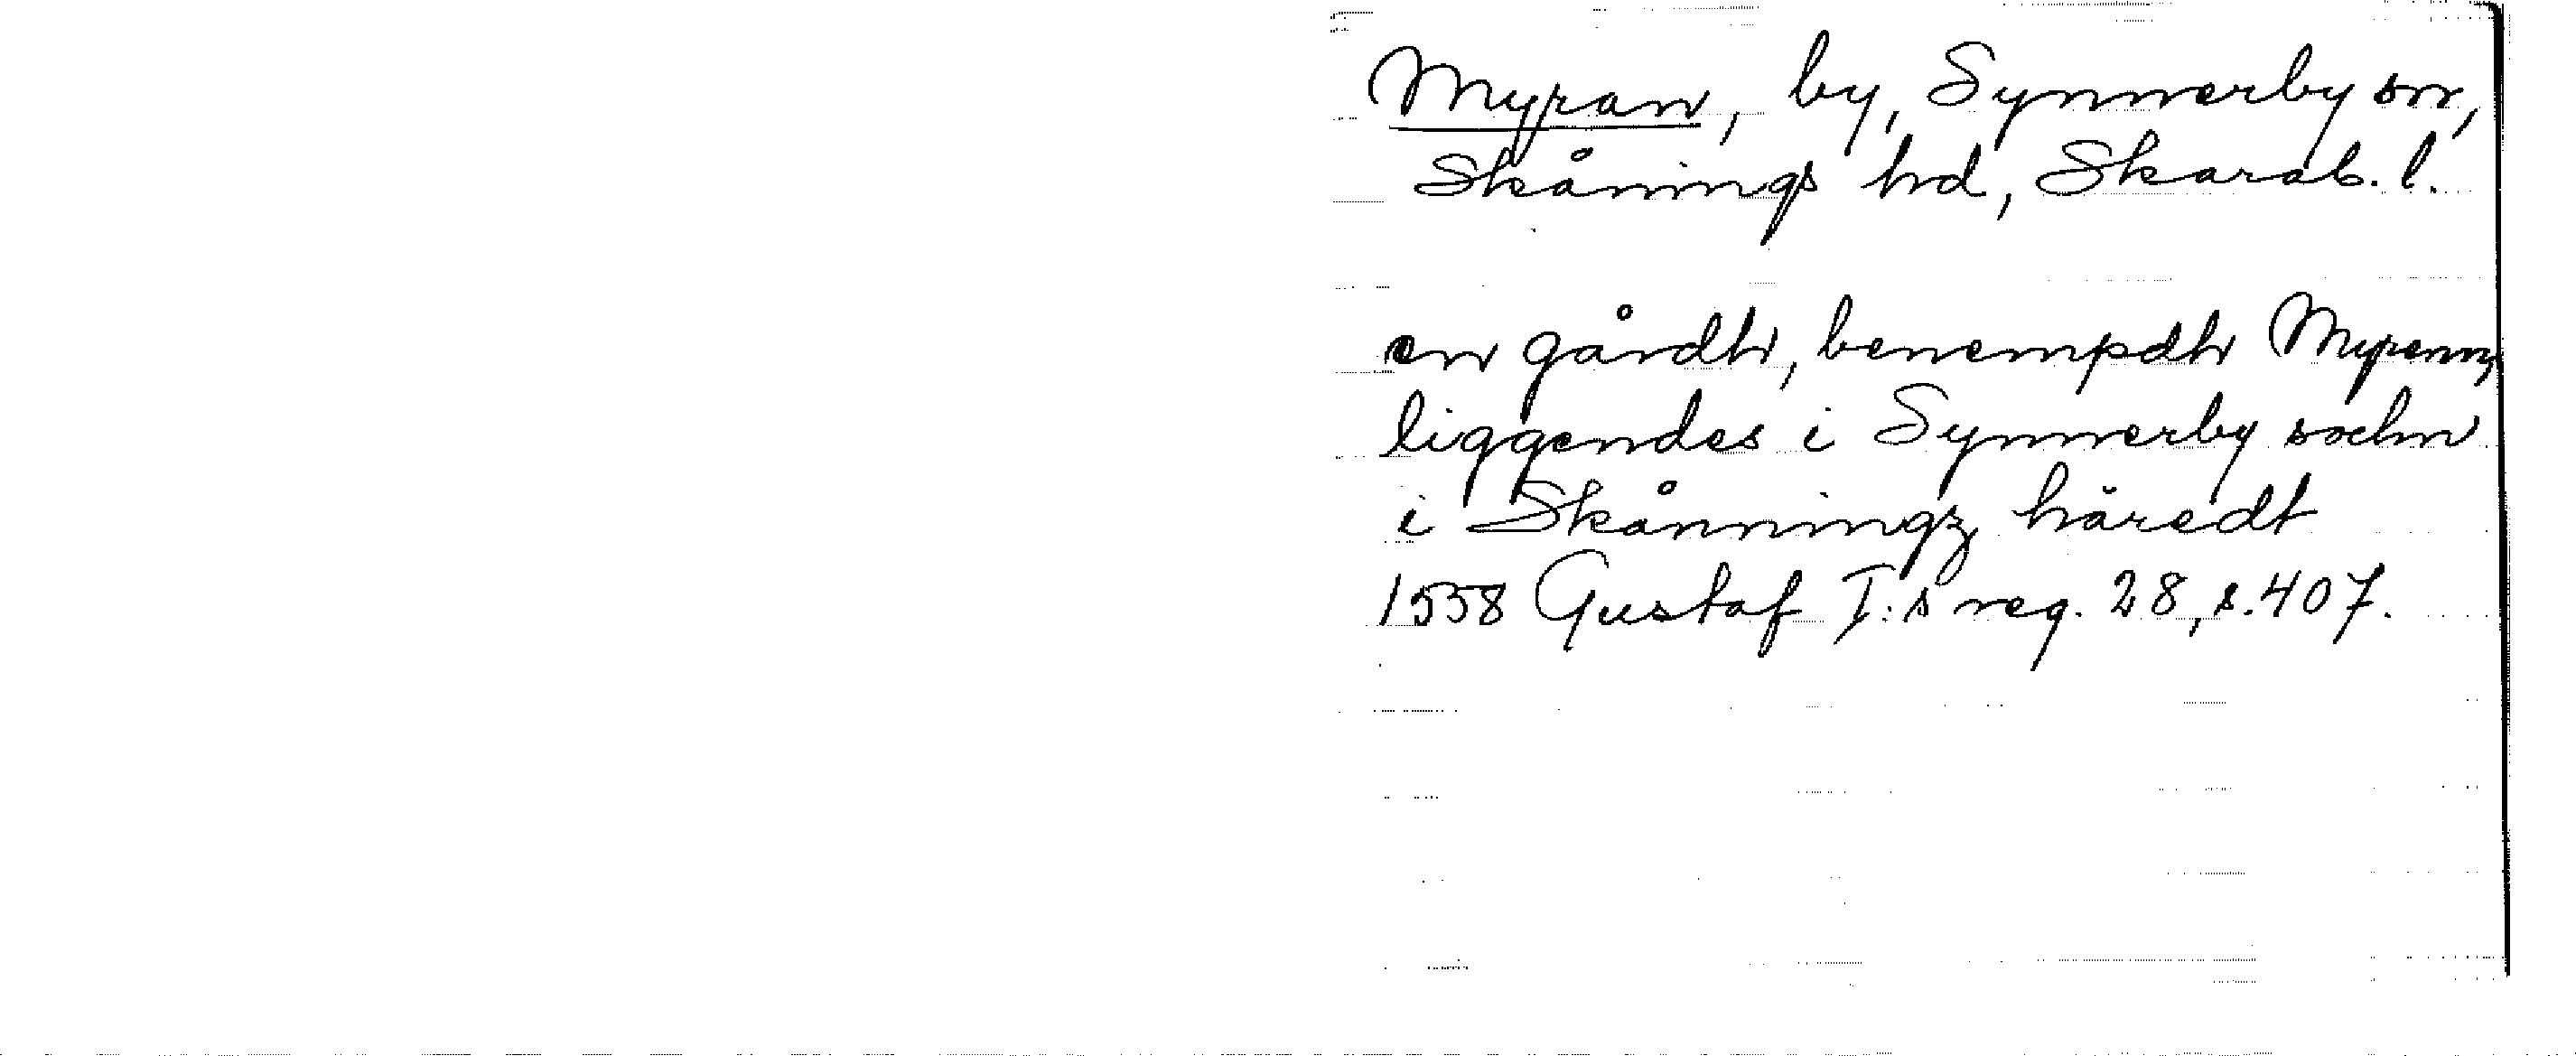 Myran, by, Synnerby sn,
Skånings hd, Skarab. l.
en gårdh, benempdh Myrenn,
liggendes i Synnerby sochn
i Skånningz häredt
1558 Gustaf I:s reg. 28, s. 407.